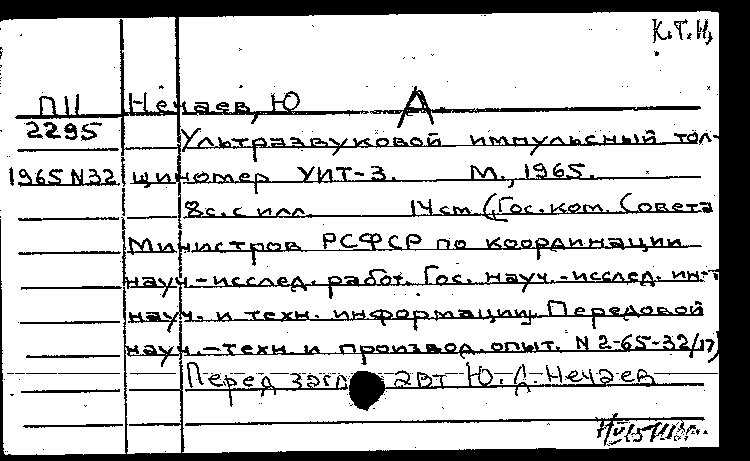 К.Т.Н,
П11 Нечаев, Ю А.
2295 Ультразвуковой импульсный тол-
1965 N32 щиномер УИТ-3. М., 1965.
8с. с илл. 14 cm (Гос. ком. Совета
Министров РСФСР по координации
науч.-исслед. работ. Гос. науч.-исслед. ин-т
науч. и техн. информации. Передовой
науч.-техн. и производ. опыт. N 2-65-32/17)
Перед загл авт Ю. А. Нечаев